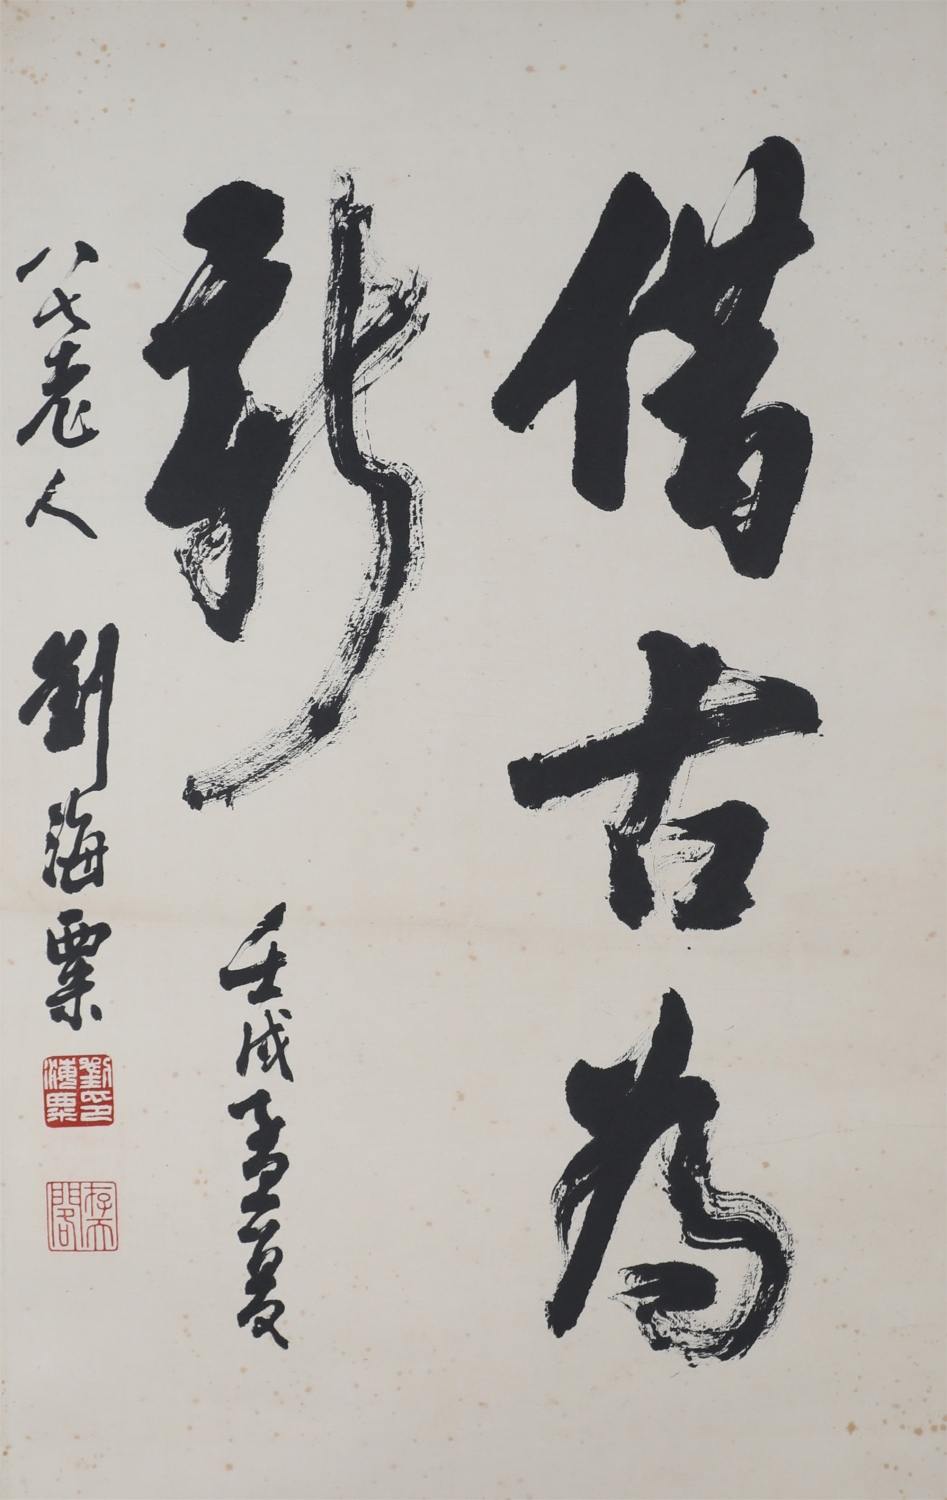 借古为
新
壬戌孟夏
八七老人 劉海粟
劉海粟印
存天閣